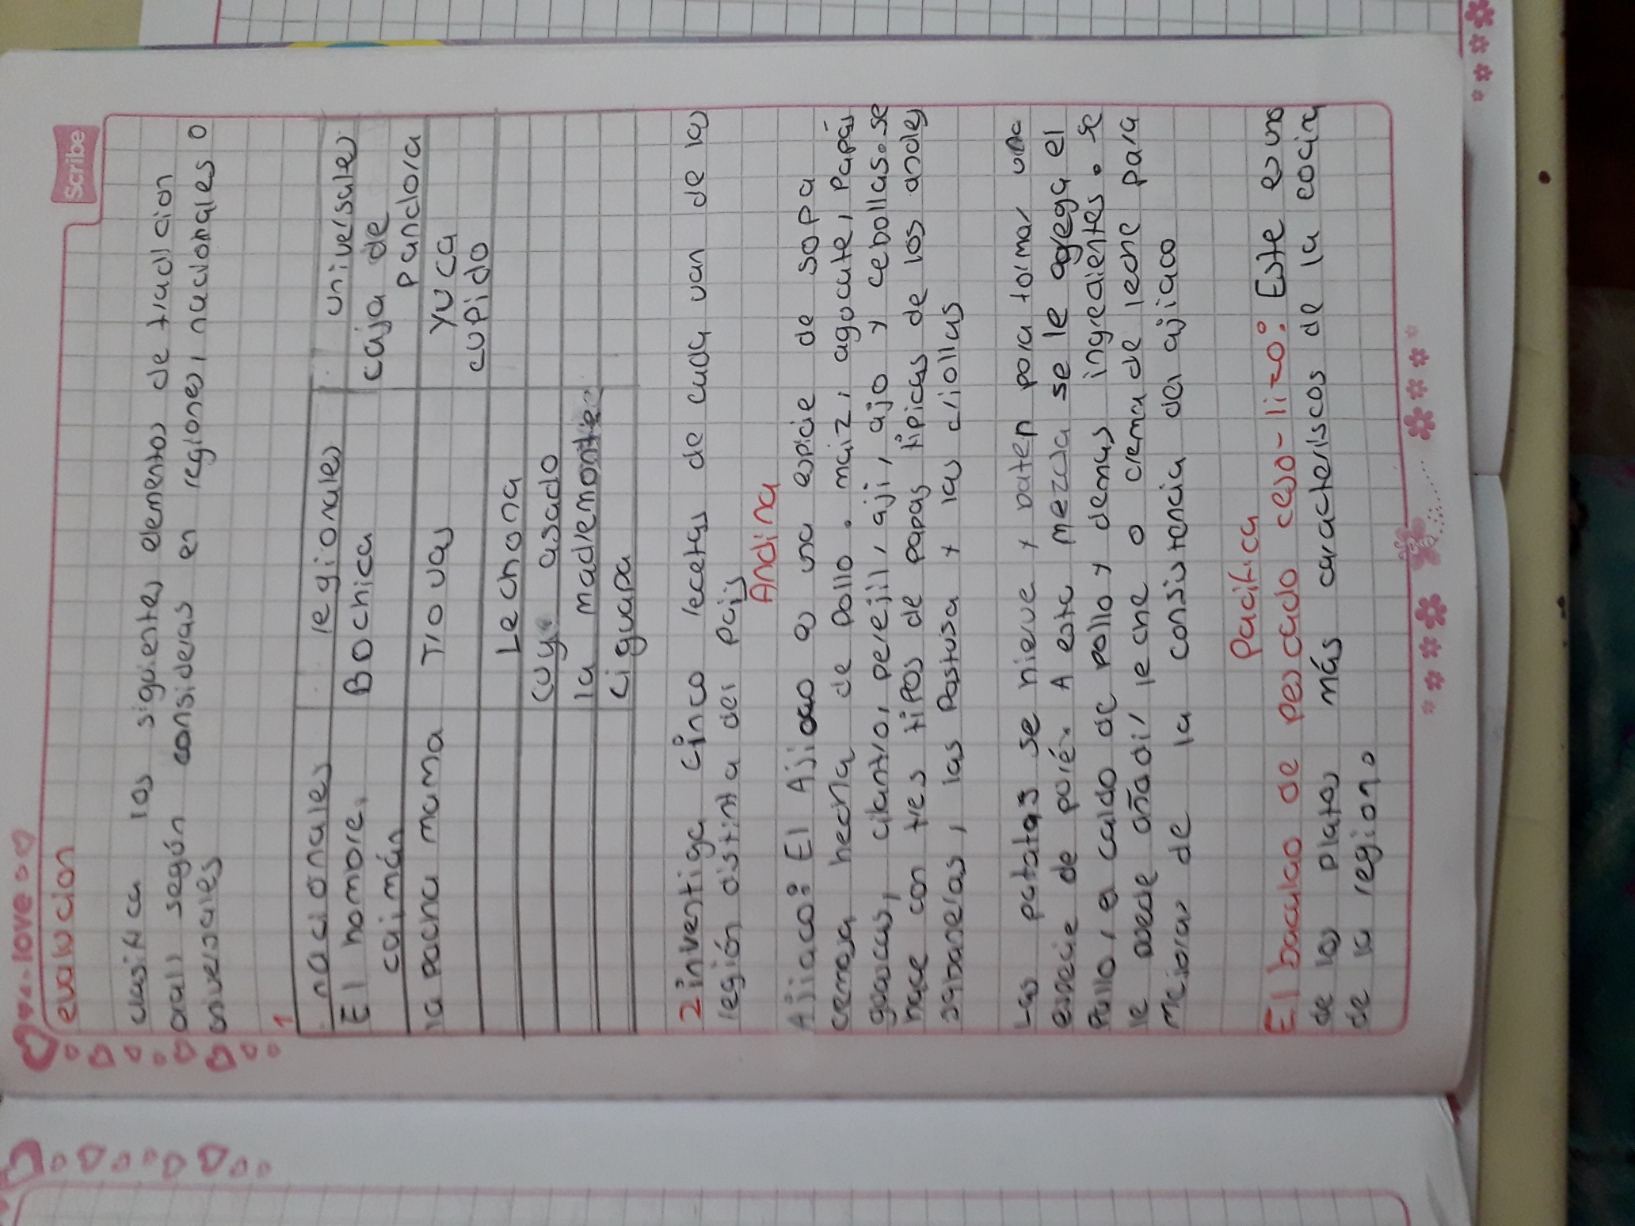 love
Scribe
evalucion
clasifica los siguientes elementos de tradicion
oral según consideras en regiones, nacionales o
universales
1
nacionales regionales universales
El hombre Bochica caja de
caimán pandora
la pacha mama Trovas yuca
cupido
Lechona
cuy asado
la madremonte
Ciguapa
2 investiga cinco recetas de cada una de las
región distinta del pais
Andina
Ajiaco: El Ajiaco es una espicie de sopa
cremosa hecha de pollo. maiz, aguacate, papas
guascas, cilantro, perejil, aji, ajo y cebollas. se
hace con tres tipos de papas tipicas de los andes
sabaneras, las Pastusa y las criollas
Las patatas se hierve y baten para formar una
especie de puré. A esta mezcla se le agrega el
Pollo, el caldo de pollo y demas ingredientes. se
le puede añadí leche o crema de leche para
Mejorar de la consistencia del ajiaco
Pacifica
El bacalao de pescado ceso-lizo: Este es uno
de los platos más caracteriscos de la cocina
de la region.